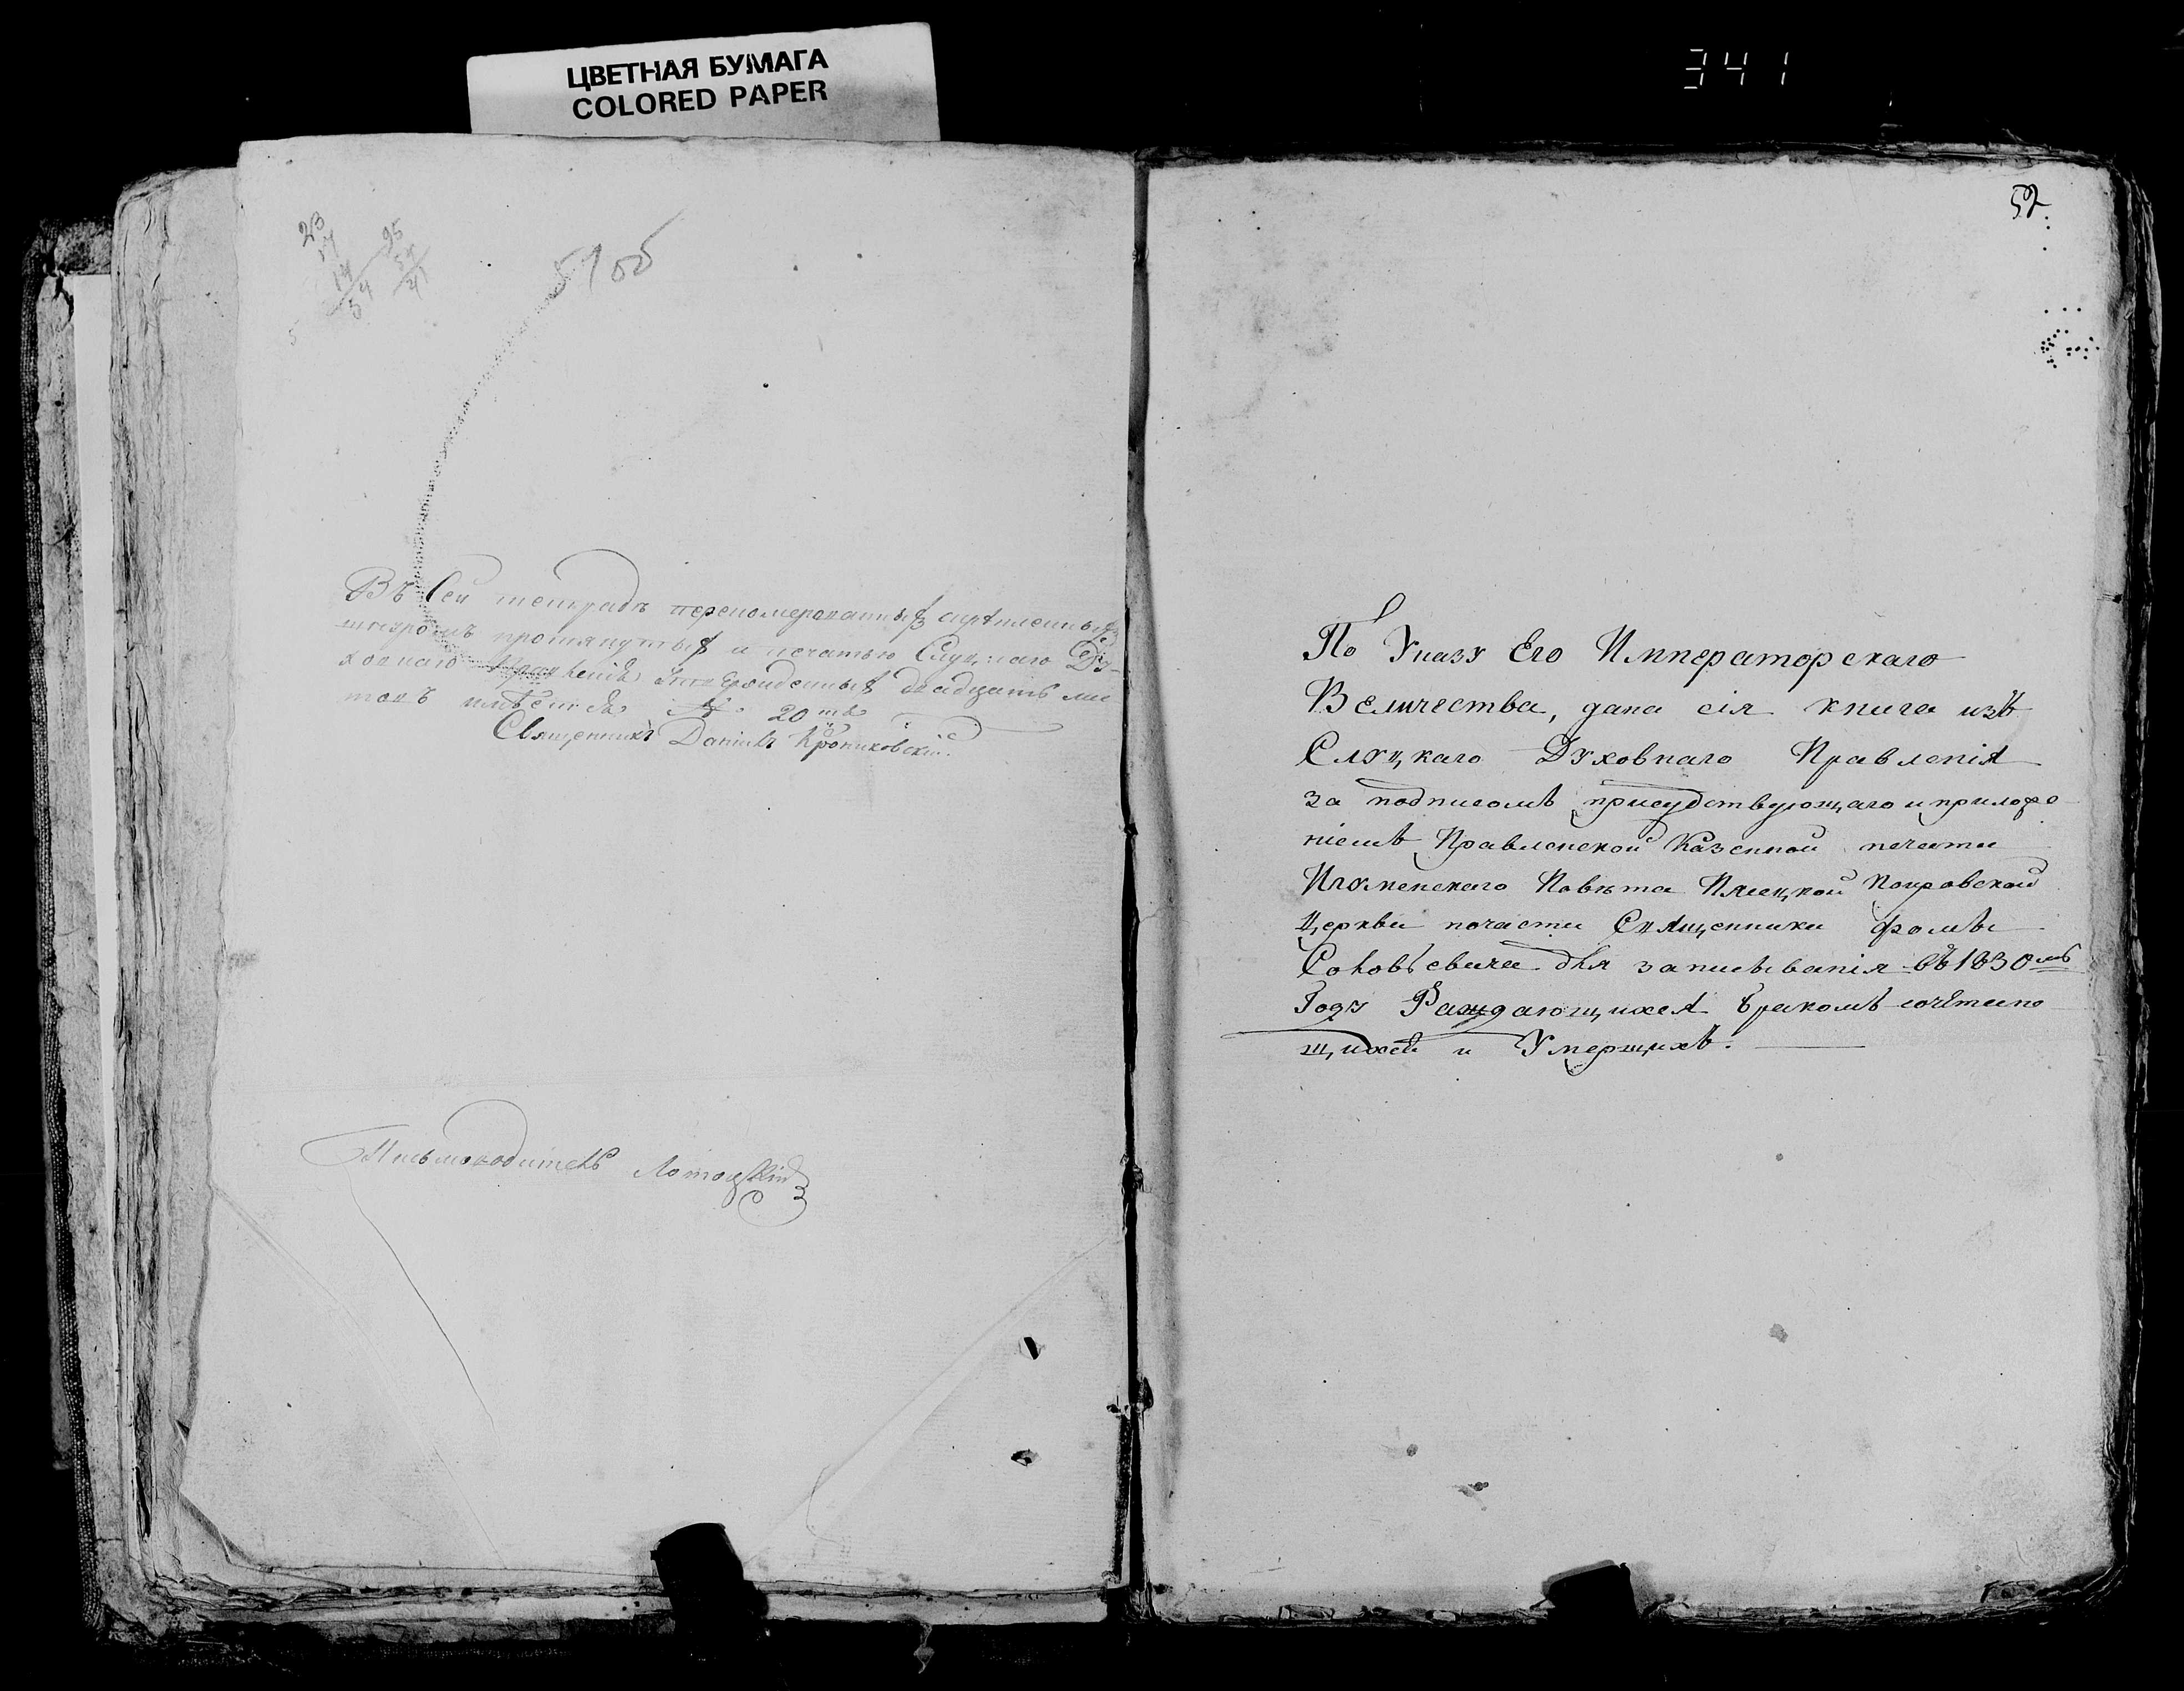 ЦВЕТНАЯ БУМАГА
COLORED PAPER
341
23
17
14
54
95
54
41
51об
Въ Сей тетрадѣ перепомерованных скрѣпленных
шнуромъ протянутых и печатью Слуцкаго Ду-
ховнаго Правленія утвержденных двадцать лис
товъ имѣется 20ть
Священникъ Даніилъ
Письмоводитель Лотоцкій
52.
По Указу Его Императорскаго
Величества, дана сія книга изъ
Слуцкаго Духовнаго Правленія
за подписомъ присудствующаго и приложе
ніемъ Правленской Казенной печати
Игуменскаго Повѣта Покровской
Церкви почасти Священника Фомы
для записыванія въ 1830мъ
Году Раждающихся бракомъ сочетаю
щихся и Умерщихъ.